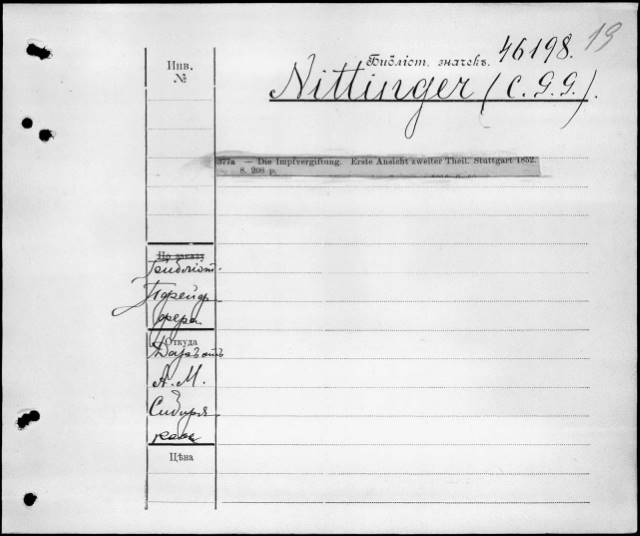 19
Библіот. значекъ. 46198.
Инв.
№
Nittinger (C. G. G.).
377a — Die Impfvergiftung. Erste Ansicht zweiter Theil. Stuttgart 1852.
8. 208 p.
По заказу
Библіот.
Пфейф
фера
Откуда
Даръ отъ
А. М.
Сибиря
кова
Цѣна